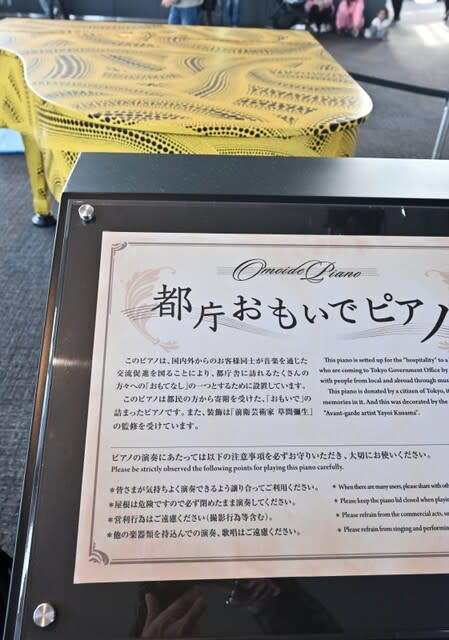 Omoide Piano
都庁おもいでピアノ
このピアノは、国内外からのお客様同士が音楽を通じた
交流促進を図ることにより、都庁舎に訪れるたくさんの
方々への「おもてなし」の一つとするために設置しています。
このピアノは都民の方から寄贈を受けた、「おもいで」の
詰まったピアノです。また、装飾は「前衛芸術家 草間彌生」
の監修を受けています。
This piano is setted up for the "hospitality" to a
who are coming to Tokyo Government Office by
with people from local and abroad through mus
This piano is donated by a citizen of Tokyo,
memories in it. And this was decorated by the
"Avant-garde artist Yayoi Kusama".
ピアノの演奏にあたっては以下の注意事項を必ずお守りいただき、大切にお使いください。
Please be strictly observed the following points for playing this piano carefully.
＊皆さまが気持ちよく演奏できるよう譲り合ってご利用ください。
＊屋根は危険ですので必ず閉めたまま演奏してください。
＊営利行為はご遠慮ください(撮影行為等含む)。
＊他の楽器類を持込んでの演奏、歌唱はご遠慮ください。
＊ When there are many users, please share with oth
＊ Please keep the piano lid closed when playing
＊ Please refrain from the commercial acts, su
＊ Please refrain from singing and performin